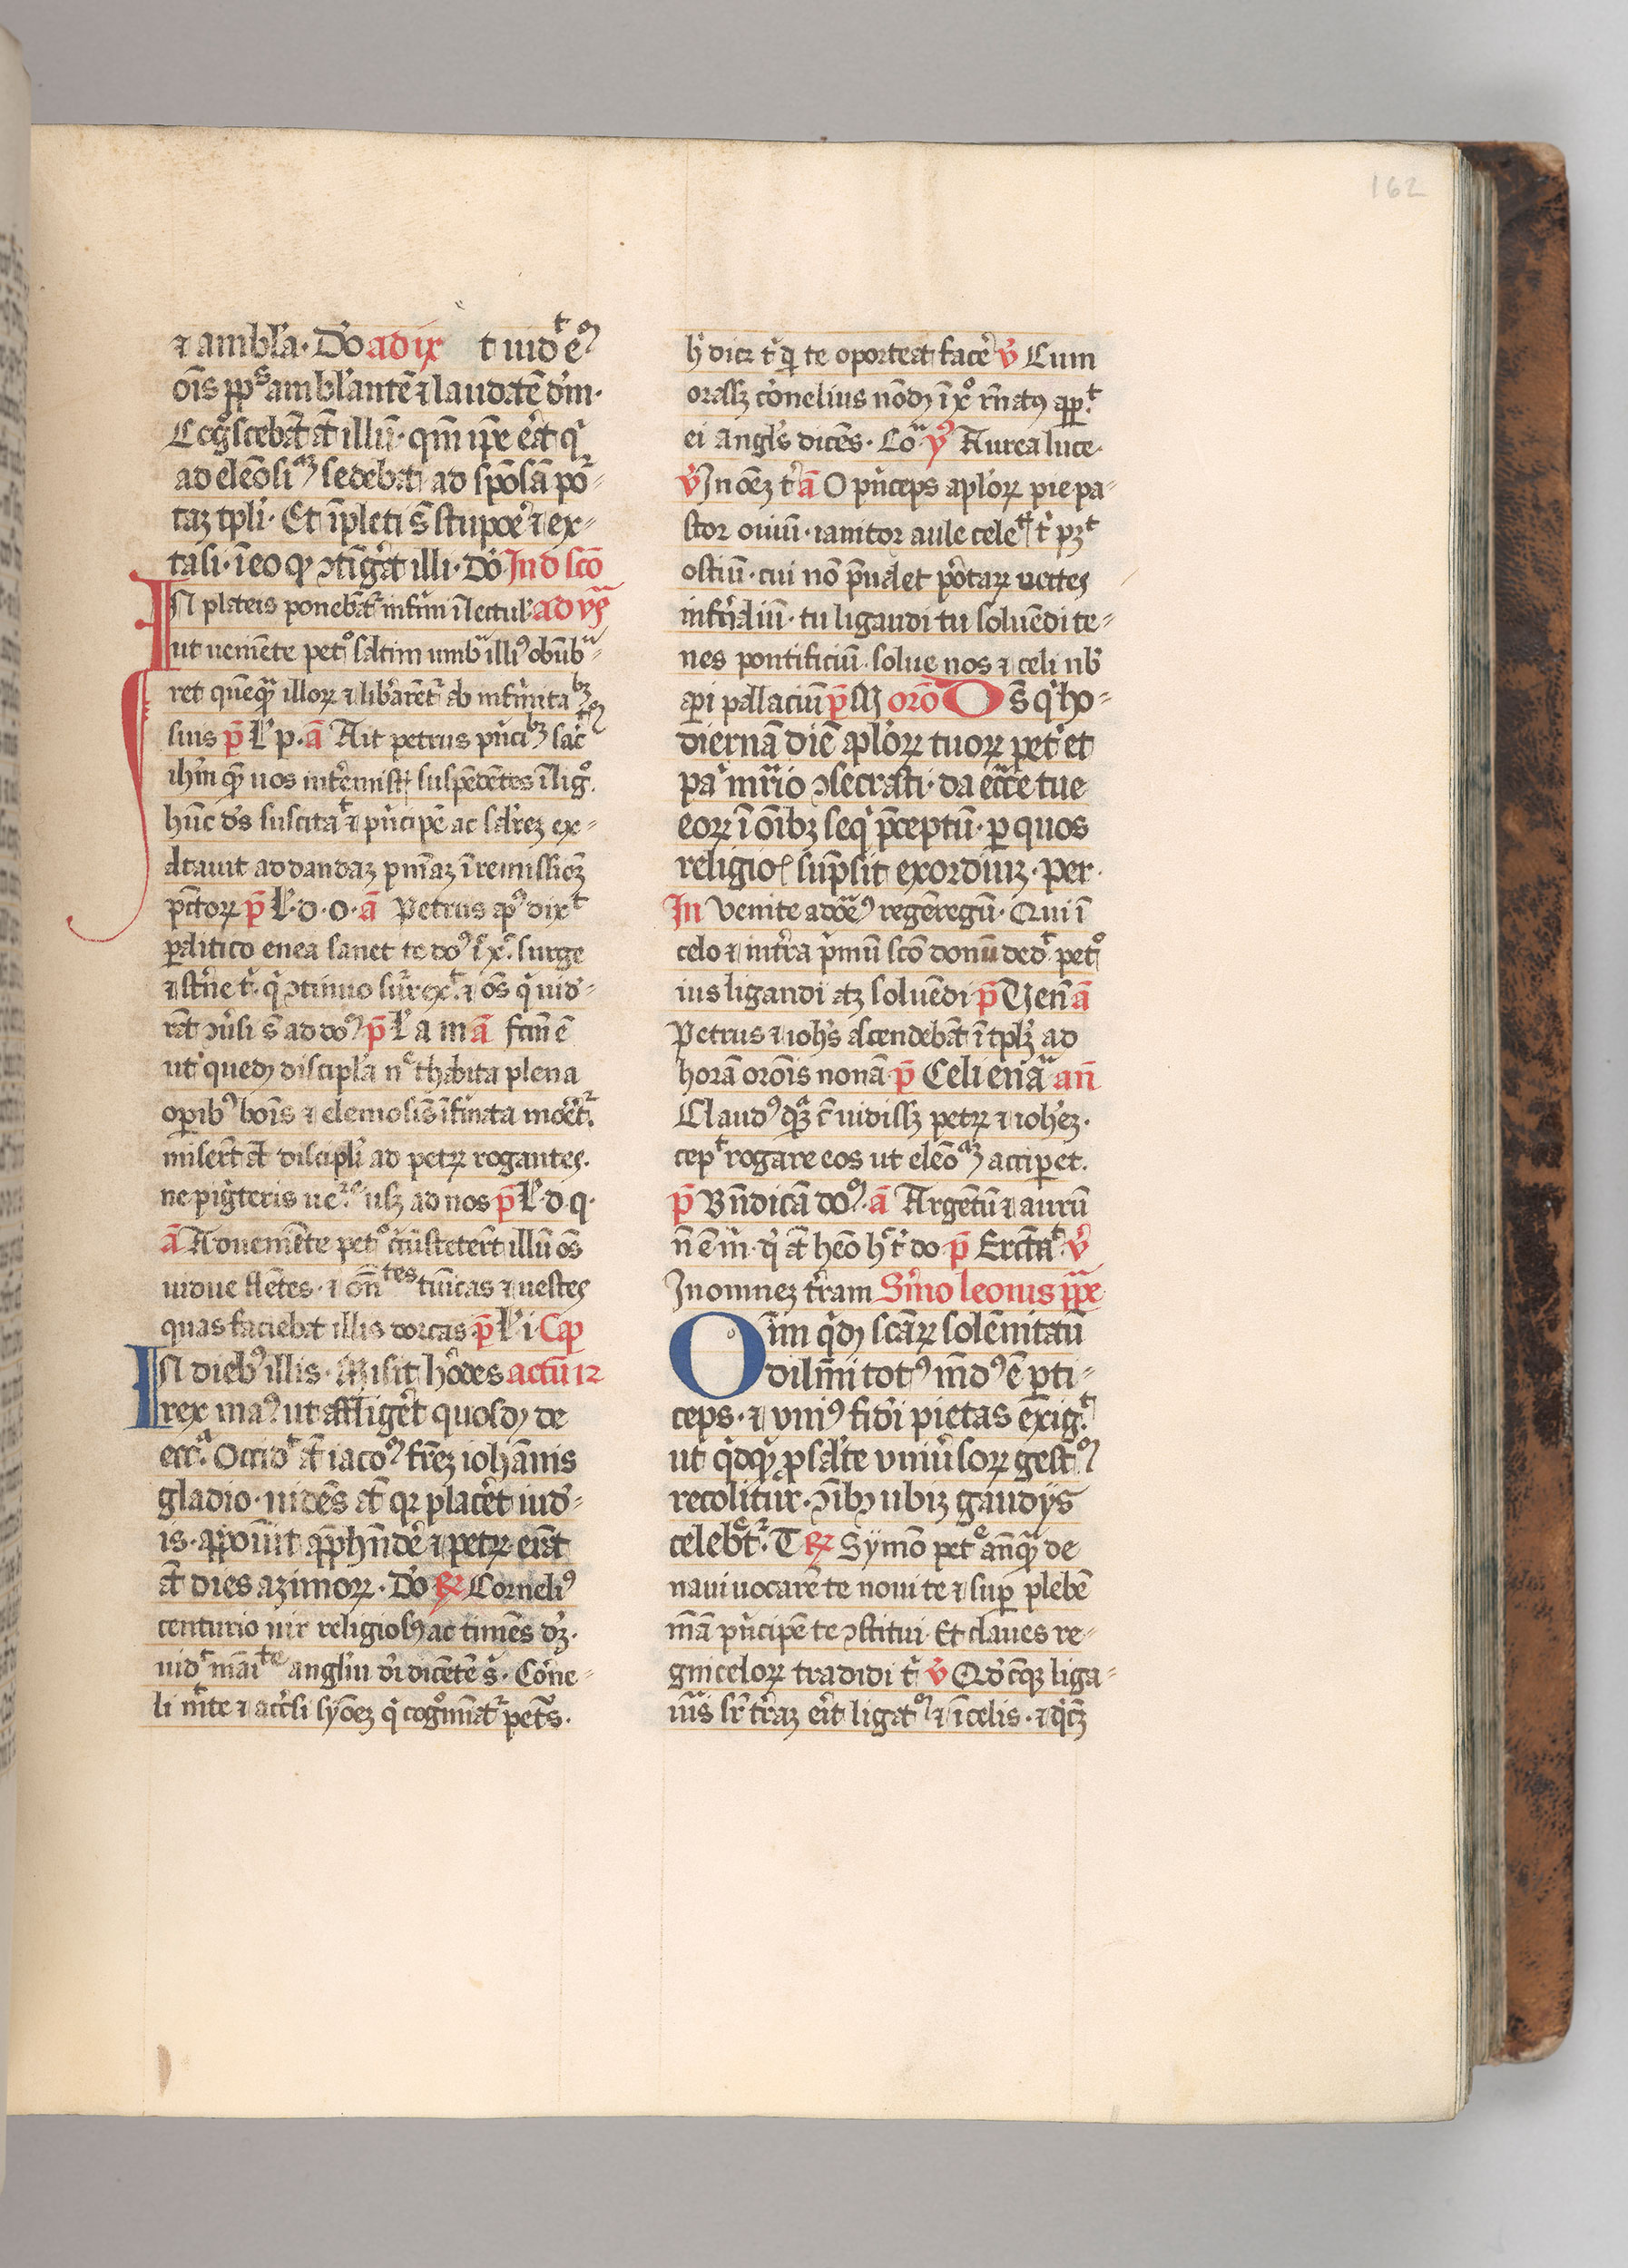 162
⁊ ambl'a. Do ad ix t uid e
ois pp's ambl'antē ⁊ laudātē dm.
Cognoscebāt āt illū. qm ipe erat q
ad eleōsi sedebat ad spōsā por-
taz tpli. Et īpleti s stupore ⁊ ex-
tasi. ī eo qd ꝯtigerat illi. Do In d sco
IN plateis ponebāt infir ī lectul' ad vs
ut ueniēte peto saltim umb illi' obūb-
ret quēq illoꝝ ⁊ liberarēt ab infirmita
suis p L p. ā Ait petrus pncibz sac
ihm quē uos intermisti suspēdētes ī lig.
hūc ds suscita ⁊ pncipē ac saluatorez ex-
altauit ad dandaz pniaz ī remissionez
pctoꝝ p L. d. o. ā Petrus ap' dix
palitico enea sanet te do' i x. surge
⁊ sterne t. q ꝯtinuo surex. ⁊ os q uid-
rāt ꝯuersi s ad do' p L a m ā fcm ē
ut quedā discipl'a n thabita plena
opib' bois ⁊ elemosis īfirmata moret.
miserūt āt discipli ad petꝝ rogantes.
ne pigriteris ue usqz ad nos p L. d. q.
ā Adueniēte peto circūsteterūt illū os
uidue flētes. ⁊ on tes tunicas ⁊ uestes
quas faciebat illis dorcas p L i. Cap
IN dieb' illis. Misit hodes actuū 12
rex ma' ut affligeret quosdā de
ecca. Occid āt iaco' frēz iohānis
gladio. uidēs āt qz placeret iud-
is. apposuit apphēdere ⁊ petꝝ erāt
āt dies azimoꝝ. Do ꝶ Corneli'
centurio uir religiosus ac timēs dz.
uid mani te angl'm di dicētē s. Corne-
li mite ⁊ accersi syōez q cognoiat petrus.
h dicet t qd te oporteat facere ꝟ Cum
orassz cornelius nōdū ī xo renatus apa
ei angl's dicēs. Co y Aurea luce.
ꝟ In oēz t ā O pnceps apl'oꝝ pie pa-
stor ouiū. ianitor aule cele t pz
ostiū. cui nō preualet portaꝝ uectes
infernaliū. tu ligandi tu soluēdi te-
nes pontificiū. solue nos ⁊ celi nb
api pallaciū p M oro Ds q ho-
diernā diē apl'oꝝ tuoꝝ pet et
pa mrio ꝯsecrasti. da eccle tue
eoꝝ ī oibz seq pceptū. p quos
religiois sūpsit exordiuz. Per.
In Venite adore' regē regū. Qui ī
celo ⁊ in terra pmū sco donū ded peto
ius ligandi atqz soluēdi p Ven ā
Petrus ⁊ iohs ascendebāt ī tplz ad
horā orois nonā p Celi ena an
Claud' qz t uidissz petꝝ ⁊ iohez.
cep rogare eos ut eleo acciperet.
p Bndicā do'. ā Argētū ⁊ aurū
n ē m. q āt heo h t do p Exulta ꝟ
In omnez terram Smo leonis ppe
Oim qdē scaꝝ solēnitatū
dilmi tot' mūd' ē pti-
ceps. ⁊ vni' fidei pietas exigit
ut qdqd p salute vniuersoꝝ gest
recolitur. ꝯibz ubiqz gaudijs
celebret. T ꝶ Symō pet anqꝫ de
naui uocarē te noui te ⁊ sup plebē
mā pncipē te ꝯstitui. Et claues re-
gni celoꝝ tradidi t ꝟ Qdcūqz liga-
ueris sr terraz erit ligat' ⁊ ī celis. ⁊ qcqz